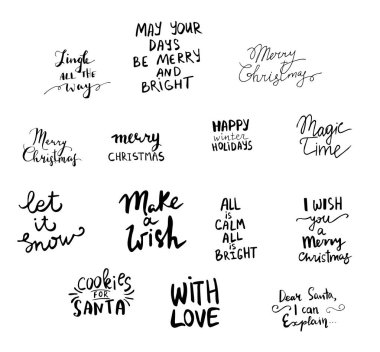 Jingle
ALL THE
way
MAY YOUR
DAYS
BE MERRY
AND
BRIGHT
Merry
Christmas
Merry
Christmas
merry
CHRISTMAS
HAPPY
winter
HOLIDAYS
Magic
Time
let
it
snow
Make
a
wish
ALL
is
CALM
ALL
is
BRIGHT
I WISH
you
a
Merry
Christmas
COOKIES
FOR
SANTA
WITH
LOVE
Dear Santa,
I can
Explain...